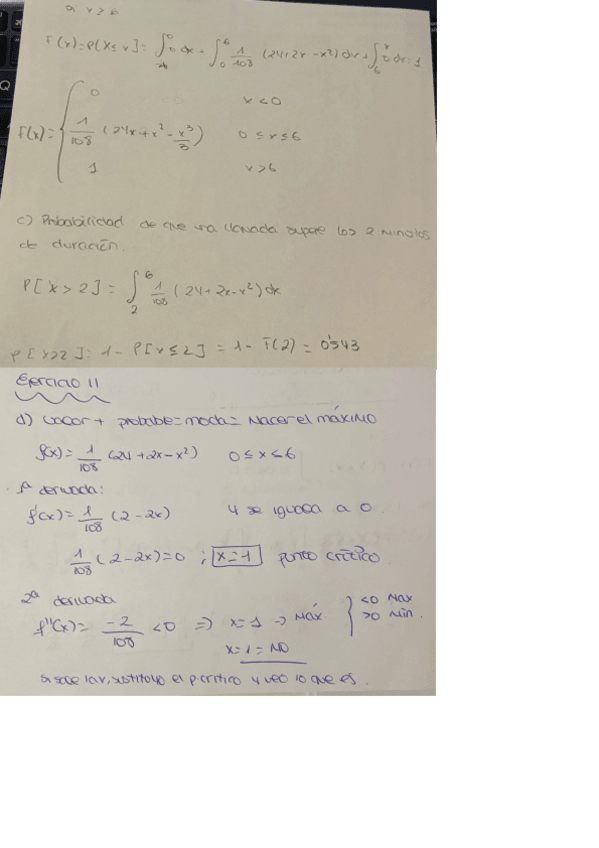 si x ≥ 6
F(x) = P[X ≤ x] = ∫_{-∞}^{0} 0 dx + ∫_{0}^{6} 1/108 (24+2x-x²) dx + ∫_{6}^{x} 0 dx = 1
F(x) = { 0 x < 0
1/108 (24x + x² - x³/3) 0 ≤ x ≤ 6
1 x > 6
c) Probabilidad de que una llamada supere los 2 minutos
de duración.
P[X > 2] = ∫_{2}^{6} 1/108 (24+2x-x²) dx
P[X>2] = 1 - P[X ≤ 2] = 1 - F(2) = 0'543
Ejercicio 11
d) Valor + probable = moda = Hacer el máximo
f(x) = 1/108 (24 + 2x - x²) 0 ≤ x ≤ 6
1ª derivada:
f'(x) = 1/108 (2 - 2x) y se iguala a 0
1/108 (2 - 2x) = 0 ; x = 1 punto crítico
2ª derivada
f''(x) = -2/108 < 0 ⇒ x = 1 → Máx } <0 Máx
>0 Min.
x = 1 = MO
si sale la x, sustituyo el p crítico y veo lo que es.